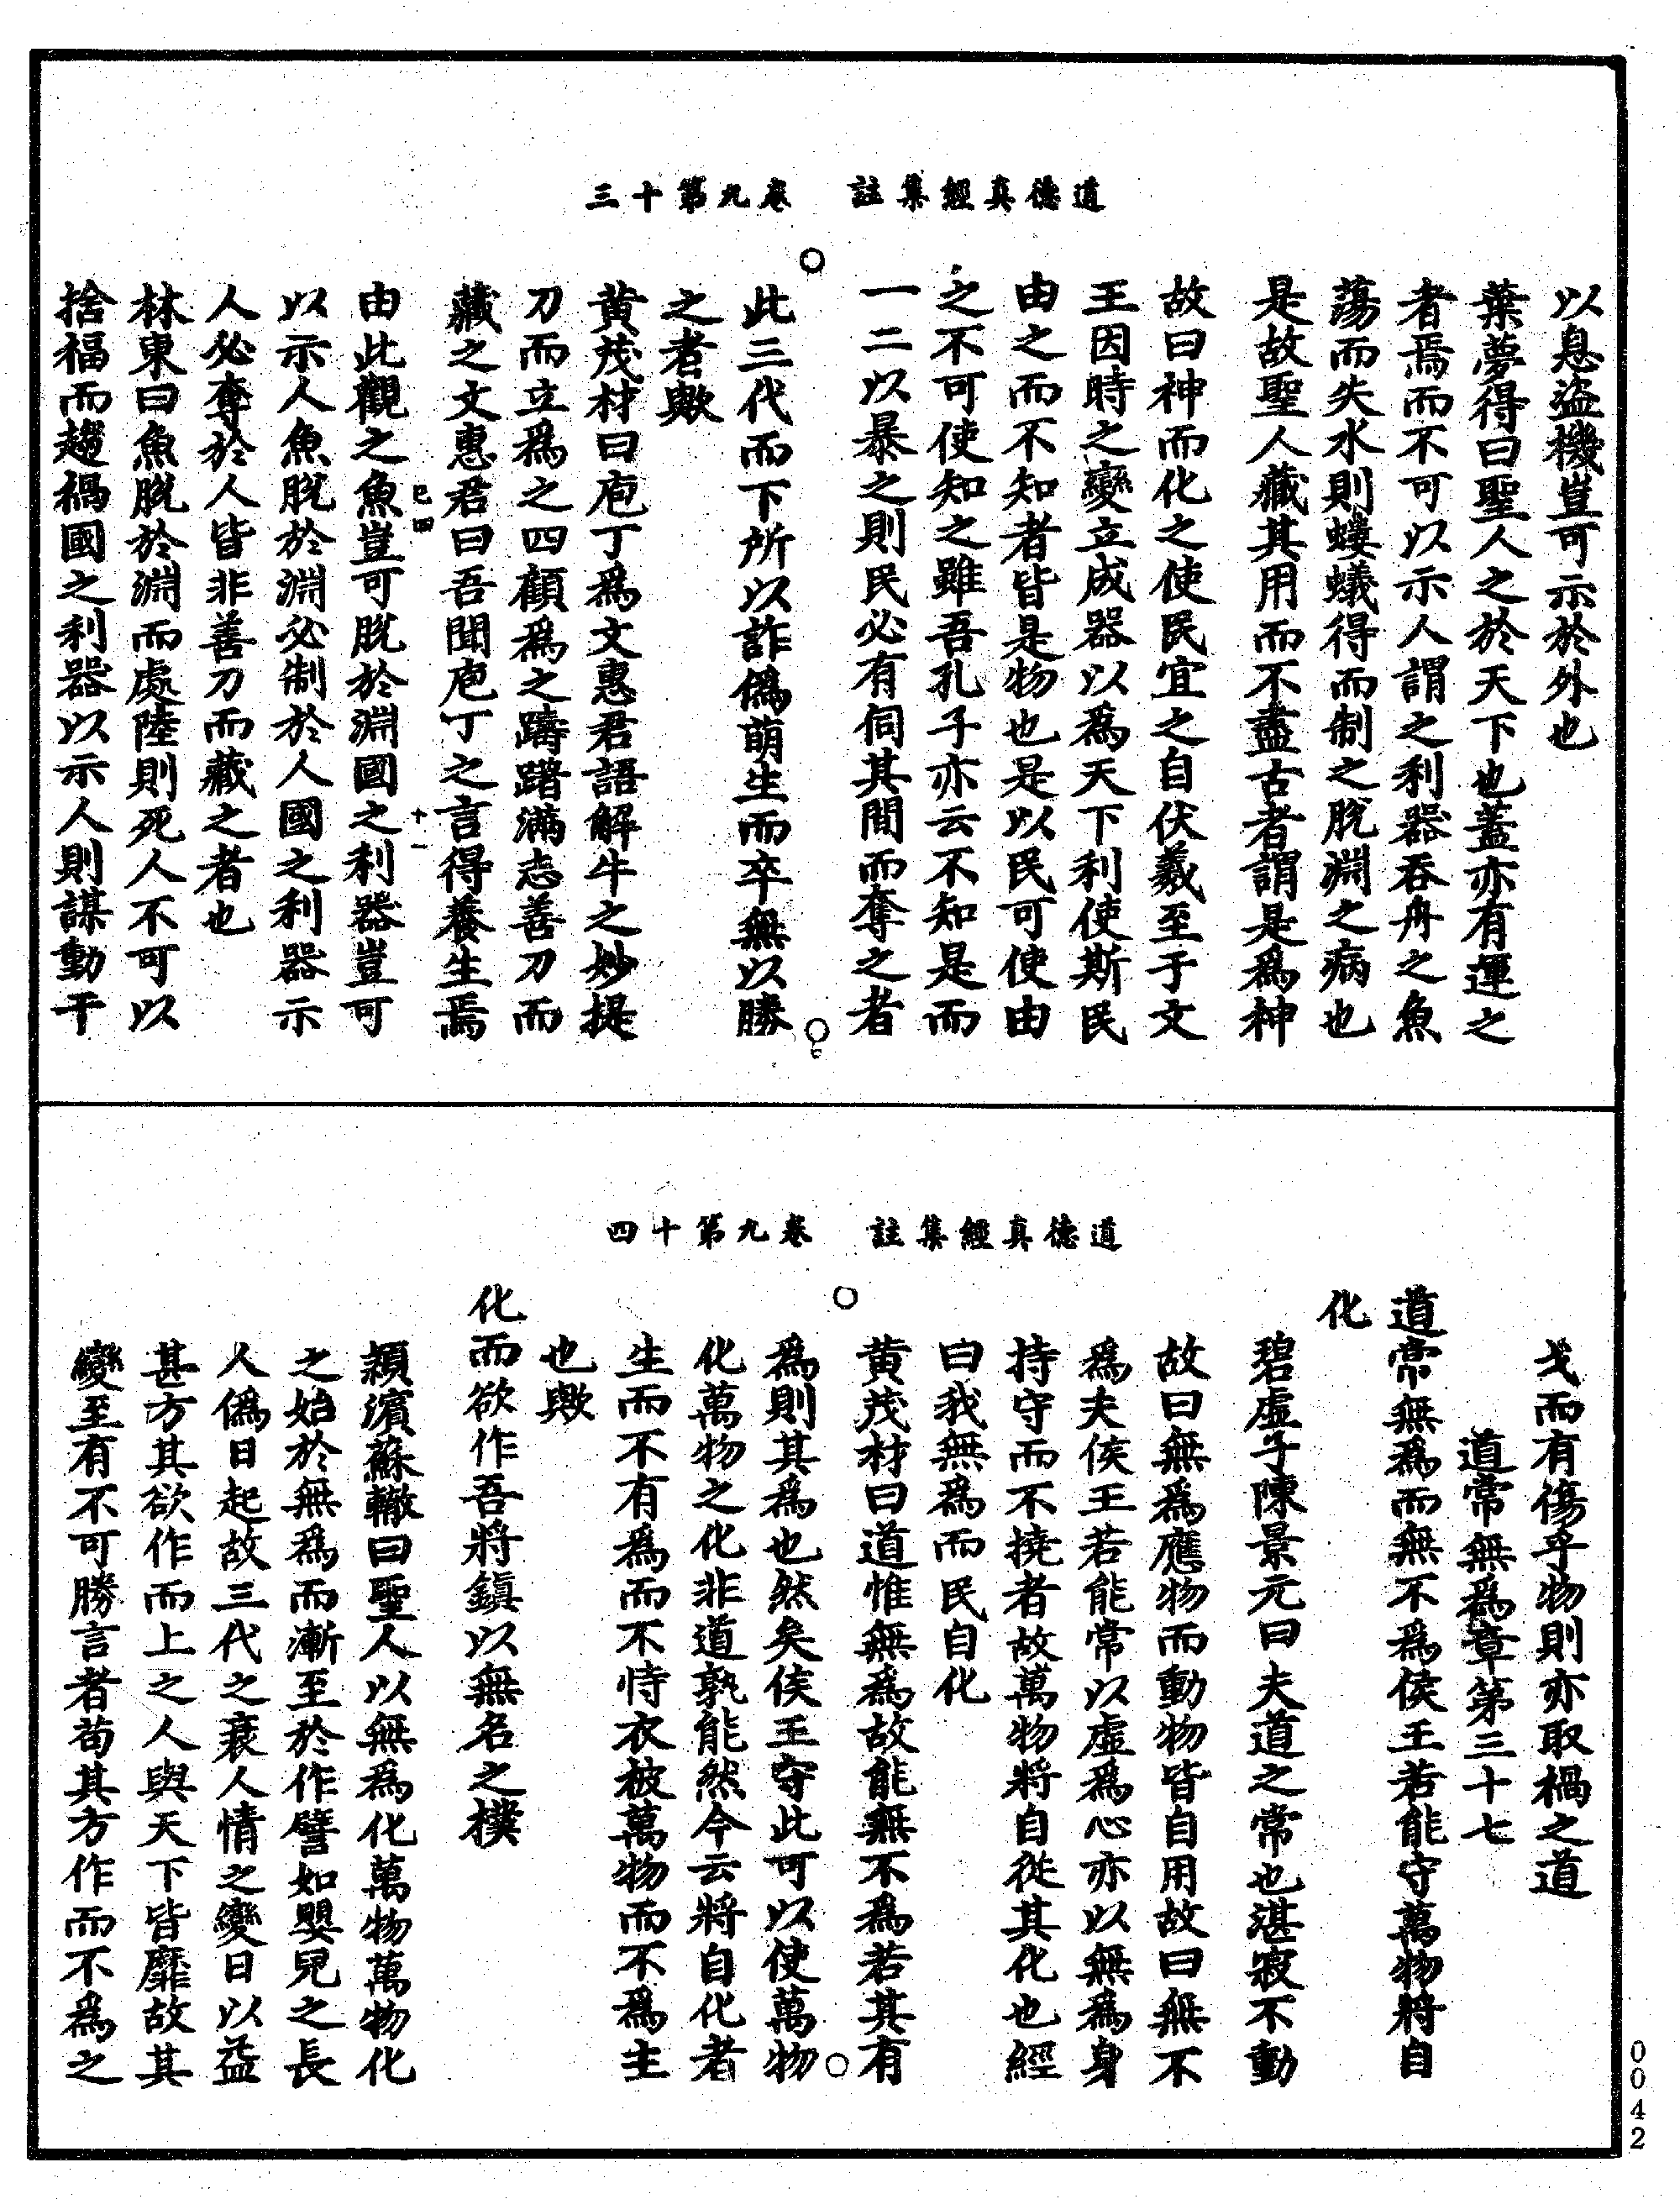 道德真經集註　卷九第十三
以息盜機豈可示於外也
葉夢得曰聖人之於天下也蓋亦有運之
者焉而不可以示人謂之利器吞舟之魚
蕩而失水則螻蟻得而制之脫淵之病也
是故聖人藏其用而不盡古者謂是爲神
故曰神而化之使民宜之自伏羲至于文
王因時之變立成器以爲天下利使斯民
由之而不知者皆是物也是以民可使由
之不可使知之雖吾孔子亦云不知是而
一二以暴之則民必有伺其間而奪之者
此三代而下所以詐僞萌生而卒無以勝
之者歟
黃茂材曰庖丁爲文惠君語解牛之妙提
刀而立爲之四顧爲之躊躇滿志善刀而
藏之文惠君曰吾聞庖丁之言得養生焉
巳四　十一
由此觀之魚豈可脫於淵國之利器豈可
以示人魚脫於淵必制於人國之利器示
人必奪於人皆非善刀而藏之者也
林東曰魚脫於淵而處陸則死人不可以
捨福而趨禍國之利器以示人則謀動干
道德真經集註　卷九第十四
戈而有傷乎物則亦取禍之道
道常無爲章第三十七
道常無爲而無不爲侯王若能守萬物將自
化
碧虛子陳景元曰夫道之常也湛寂不動
故曰無爲應物而動物皆自用故曰無不
爲夫侯王若能常以虛爲心亦以無爲身
持守而不撓者故萬物將自從其化也經
曰我無爲而民自化
黃茂材曰道惟無爲故能無不爲若其有
爲則其爲也然矣侯王守此可以使萬物
化萬物之化非道孰能然今云將自化者
生而不有爲而不恃衣被萬物而不爲主
也歟
化而欲作吾將鎮以無名之樸
潁濱蘇轍曰聖人以無爲化萬物萬物化
之始於無爲而漸至於作譬如嬰兒之長
人僞日起故三代之衰人情之變日以益
甚方其欲作而上之人與天下皆靡故其
變至有不可勝言者苟其方作而不爲之
0042